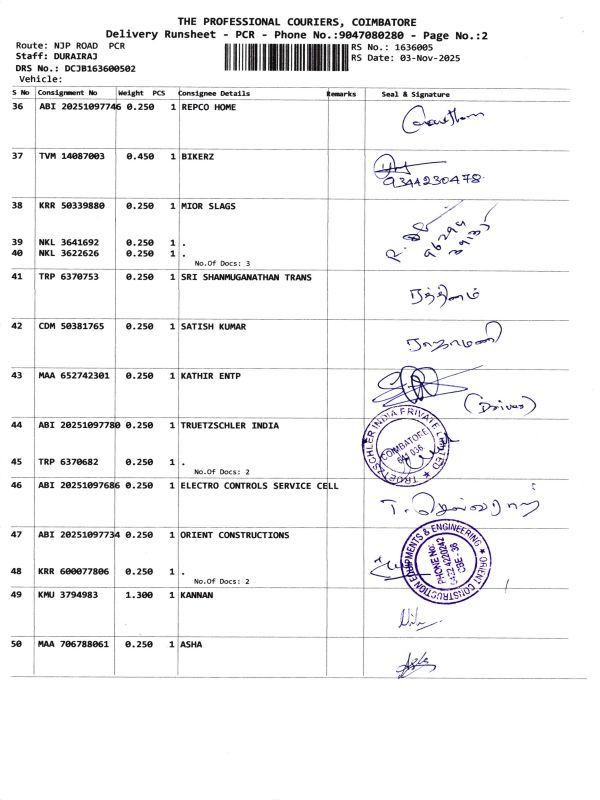 THE PROFESSIONAL COURIERS, COIMBATORE
Delivery Runsheet - PCR - Phone No.:9047080280 - Page No.:2
Route: NJP ROAD PCR
RS No.: 1636005
Staff: DURAIRAJ
RS Date: 03-Nov-2025
DRS No.: DCJB163600502
Vehicle:
S No Consignment No Weight PCS Consignee Details Remarks Seal & Signature
36 ABI 20251097746 0.250 1 REPCO HOME
37 TVM 14087003 0.450 1 BIKERZ
9344230478
38 KRR 50339880 0.250 1 MIOR SLAGS
39 NKL 3641692 0.250 1 .
40 NKL 3622626 0.250 1 .
No.Of Docs: 3
41 TRP 6370753 0.250 1 SRI SHANMUGANATHAN TRANS
ரத்தினம்
42 CDM 50381765 0.250 1 SATISH KUMAR
43 MAA 652742301 0.250 1 KATHIR ENTP
(Driver)
44 ABI 20251097780 0.250 1 TRUETZSCHLER INDIA
TRUETZSCHLER INDIA PRIVATE LIMITED
COIMBATORE
641 036
45 TRP 6370682 0.250 1 .
No.Of Docs: 2
46 ABI 20251097686 0.250 1 ELECTRO CONTROLS SERVICE CELL
47 ABI 20251097734 0.250 1 ORIENT CONSTRUCTIONS
ORIENT CONSTRUCTION EQUIPMENTS & ENGINEERING
PHONE No:
0422 4220242
CBE - 36
48 KRR 600077806 0.250 1 .
No.Of Docs: 2
49 KMU 3794983 1.300 1 KANNAN
50 MAA 706788061 0.250 1 ASHA